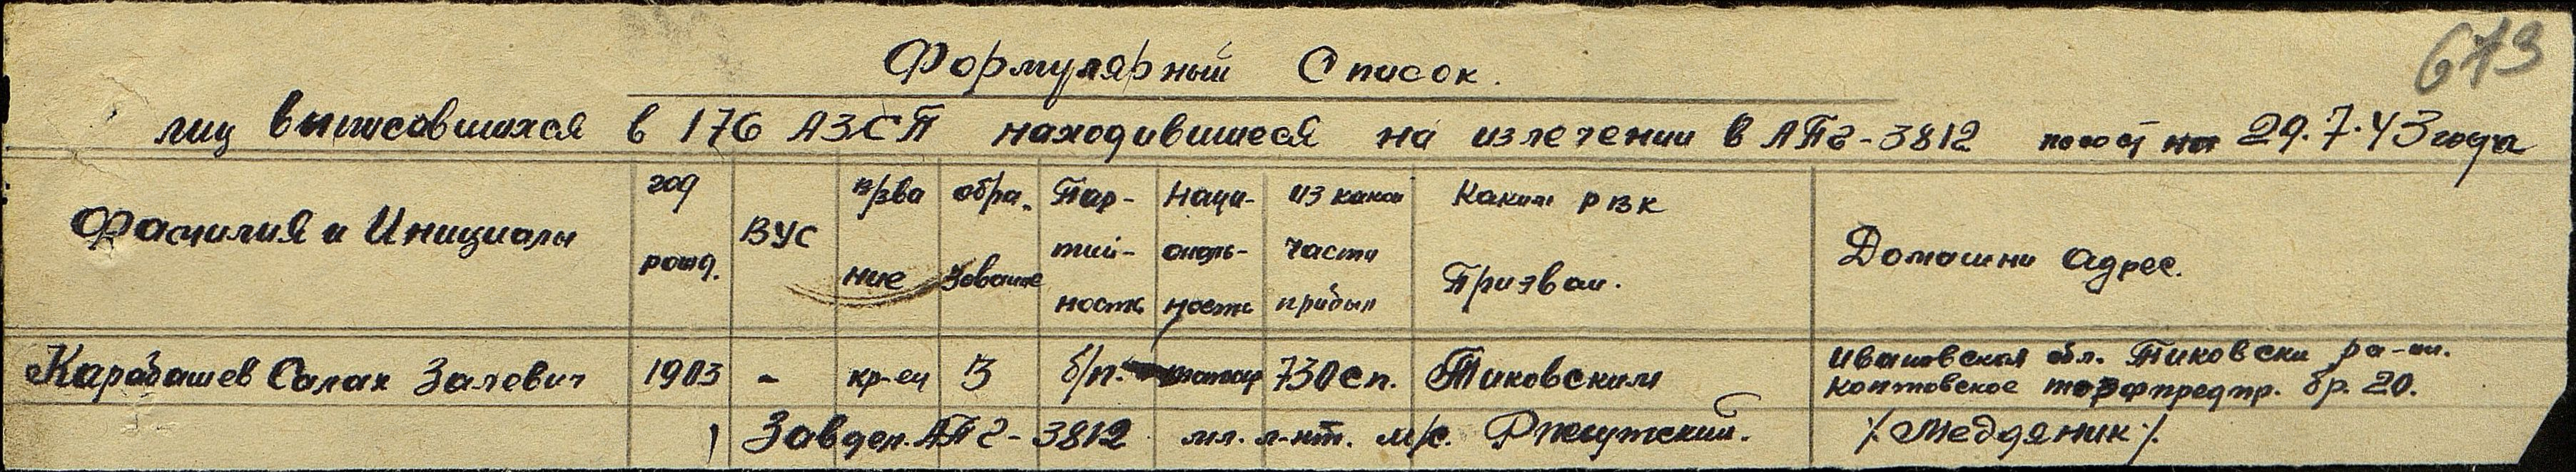 673
Формулярный Список.
лиц выписавшихся в 176 АЗСП находившиеся на излечении в АПГ-3812 на 29.7.43 года
Фамилия и Инициалы
год рожд.
ВУС
зва ние
обра. зование
Пар- тий- ность
Наци- ональ- ность
из какой части прибыл
Каким РВК Призван.
Домашни Адрес.
Карабашев Салах Залевич 1903 - кр-ец 3 б/п. татар 730 сп. Тиковским Ивановская обл. Тиковски ра-он.
Коптовское торфпредпр. бр. 20.
Завдел. АПГ-3812 мл. л-нт. м/с. Ржутский. /Медяник/